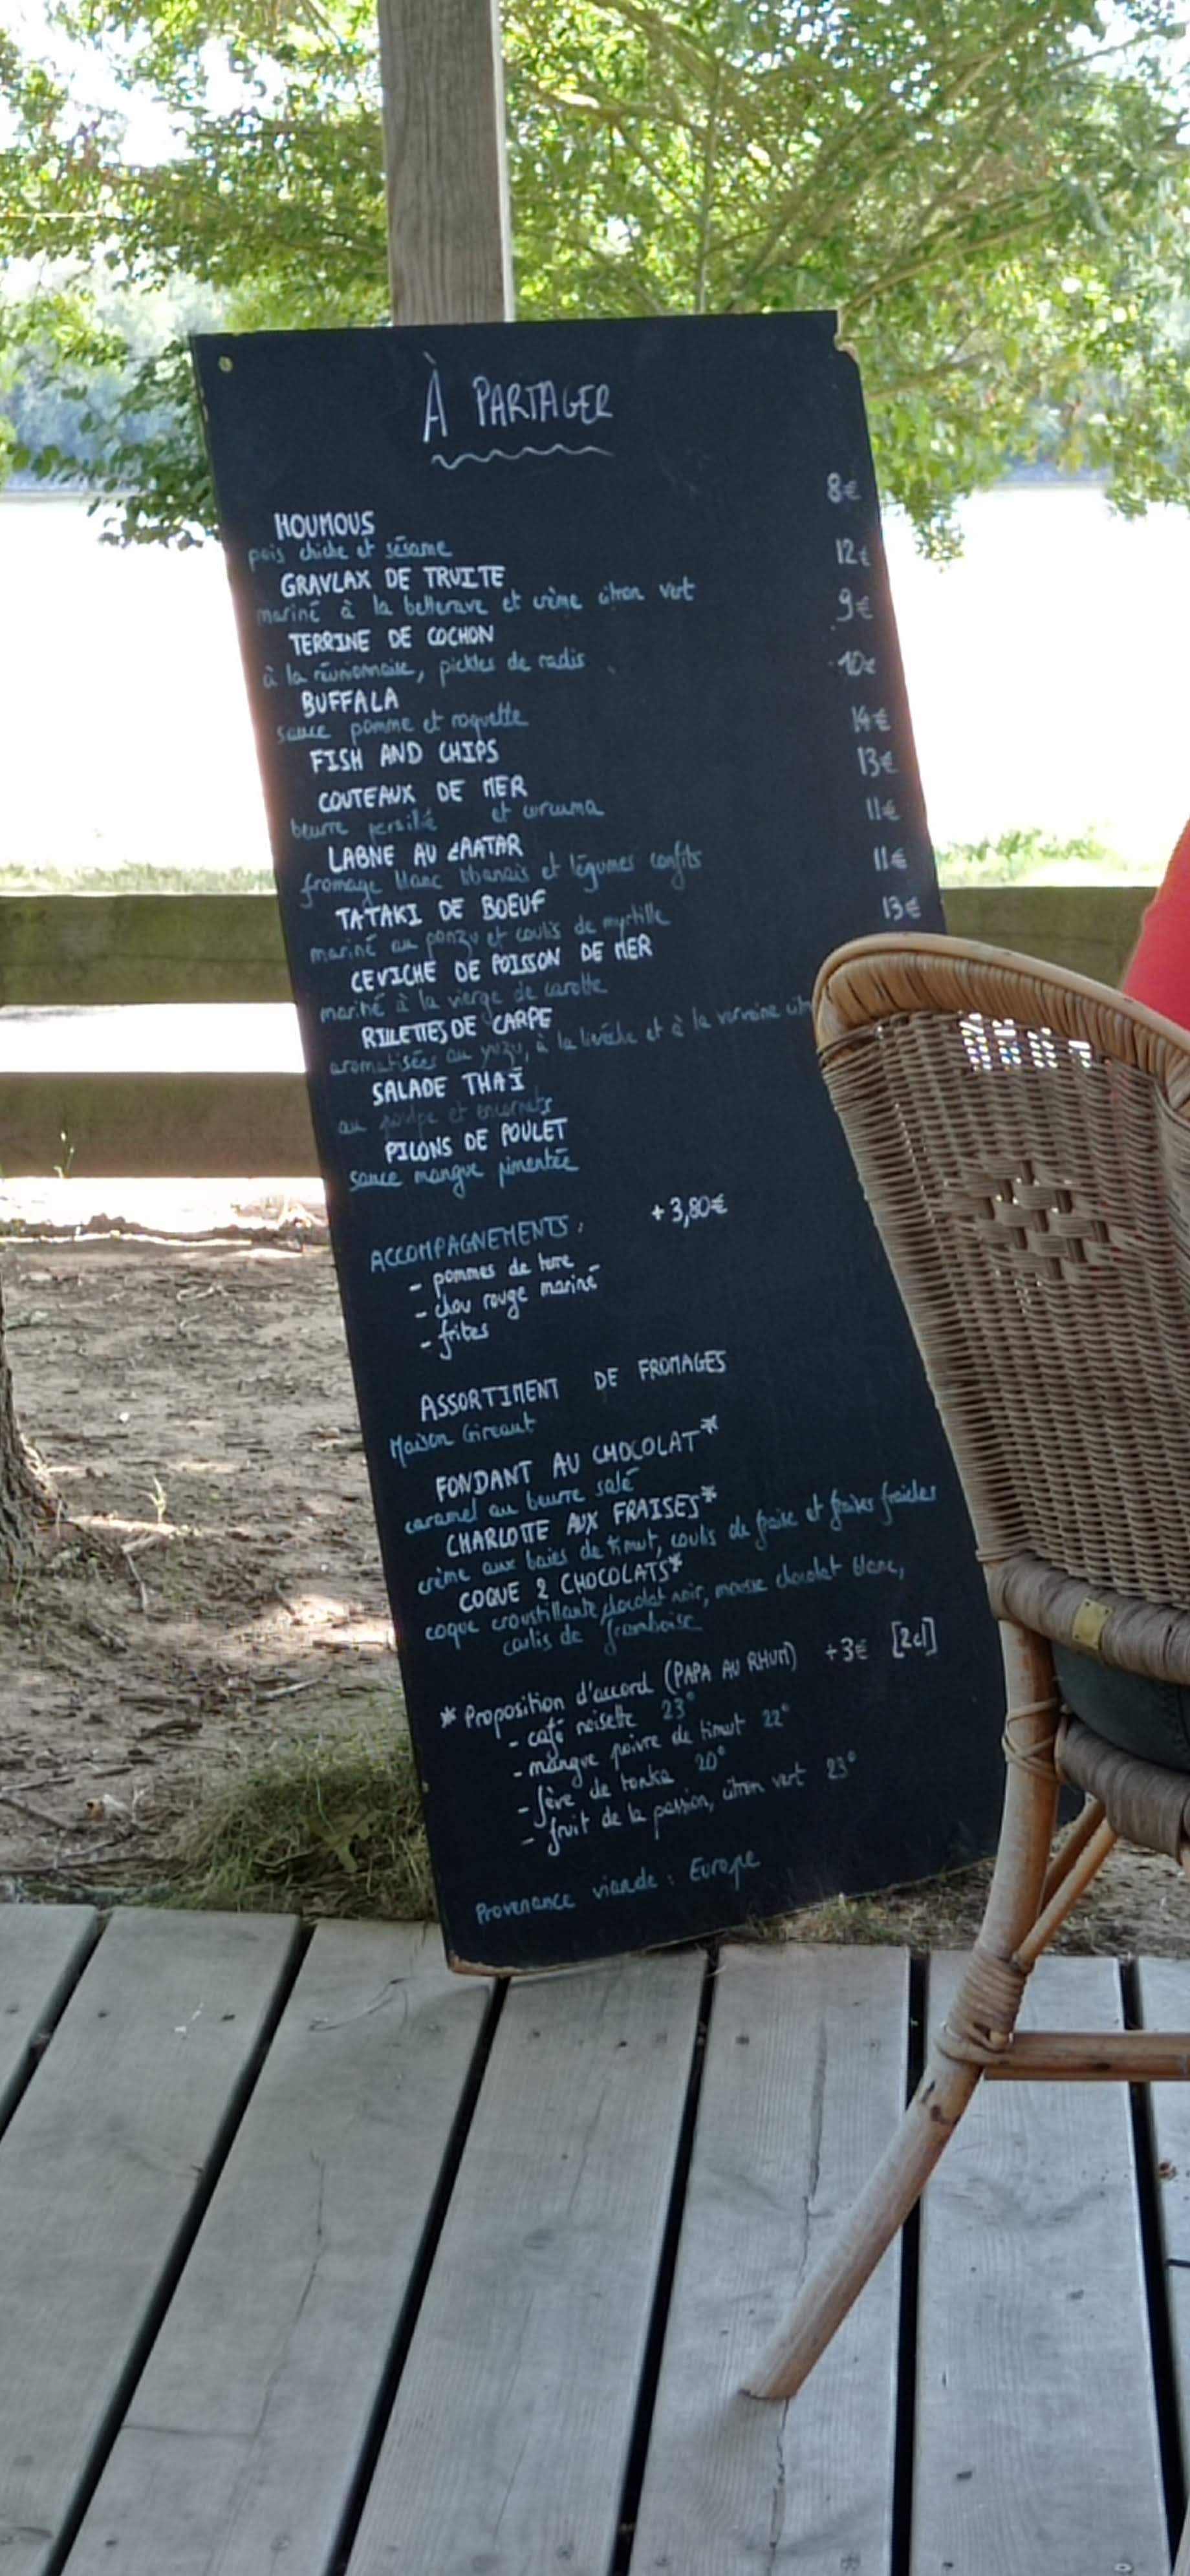 À PARTAGER
HOUMOUS 8€
pois chiche et sésame
GRAVLAX DE TRUITE 12€
mariné à la betterave et crème citron vert
TERRINE DE COCHON 9€
à la réunionnaise, pickles de radis
BUFFALA 10€
sauce pomme et roquette
FISH AND CHIPS 14€
COUTEAUX DE MER 13€
beurre persillé et curcuma
LABNE AU ZAATAR 11€
fromage blanc libanais et légumes confits
TATAKI DE BOEUF 11€
mariné au ponzu et coulis de myrtille
CEVICHE DE POISSON DE MER 13€
mariné à la vierge de carotte
RILLETTES DE CARPE
aromatisées au yuzu, à la livèche et à la verveine
SALADE THAÏ
au poulpe et encornets
PILONS DE POULET
sauce mangue pimentée
ACCOMPAGNEMENTS : + 3,80€
- pommes de terre
- chou rouge mariné
- frites
ASSORTIMENT DE FROMAGES
Maison
FONDANT AU CHOCOLAT*
caramel au beurre salé
CHARLOTTE AUX FRAISES*
crème aux baies de timut, coulis de fraise et fraises fraîches
COQUE 2 CHOCOLATS*
coque croustillante chocolat noir, mousse chocolat blanc,
coulis de framboise
* Proposition d'accord (PAPA AU RHUM) +3€ [2cl]
- café noisette 23°
- mangue poivre de timut 22°
- fève de tonka 20°
- fruit de la passion, citron vert 23°
Provenance viande : Europe